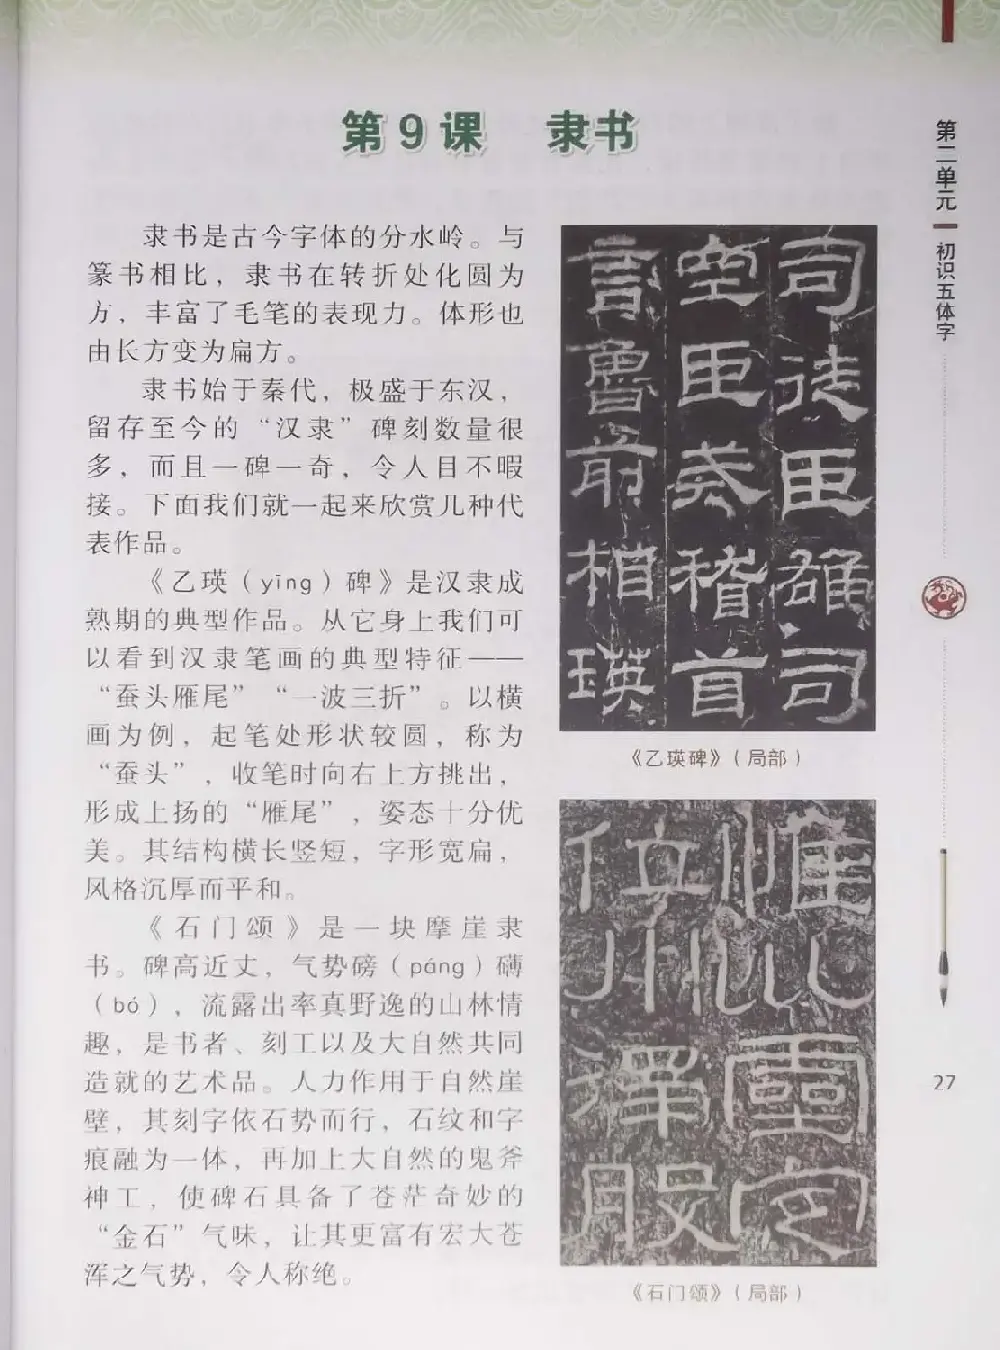 第9课 隶书
隶书是古今字体的分水岭。与
篆书相比，隶书在转折处化圆为
方，丰富了毛笔的表现力。体形也
由长方变为扁方。
隶书始于秦代，极盛于东汉，
留存至今的“汉隶”碑刻数量很
多，而且一碑一奇，令人目不暇
接。下面我们就一起来欣赏几种代
表作品。
《乙瑛（yīng）碑》是汉隶成
熟期的典型作品。从它身上我们可
以看到汉隶笔画的典型特征——
“蚕头雁尾”“一波三折”。以横
画为例，起笔处形状较圆，称为
“蚕头”，收笔时向右上方挑出，
形成上扬的“雁尾”，姿态十分优
美。其结构横长竖短，字形宽扁，
风格沉厚而平和。
《石门颂》是一块摩崖隶
书。碑高近丈，气势磅（páng）礴
（bó），流露出率真野逸的山林情
趣，是书者、刻工以及大自然共同
造就的艺术品。人力作用于自然崖
壁，其刻字依石势而行，石纹和字
痕融为一体，再加上大自然的鬼斧
神工，使碑石具备了苍茫奇妙的
“金石”气味，让其更富有宏大苍
浑之气势，令人称绝。
司徒臣雄司
空臣戒稽首
言鲁前相瑛
《乙瑛碑》（局部）
惟《灵定
位川泽股
《石门颂》（局部）
第二单元
初识五体字
27